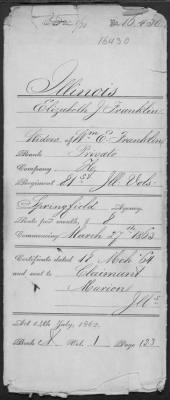 No. 16.430
16430
Illinois
Elizabeth J Franklin
Widow of Wm C. Franklin
Rank Private
Company
Regiment 81st Ill. Vols
Springfield Agency
Rate per month, $ 8
Commencing March 27th 1863
Certificate dated 18 Mch '64
and sent to Claimant
Marion
Ills
Act 14th July, 1862.
Book Vol. 1 Page 123